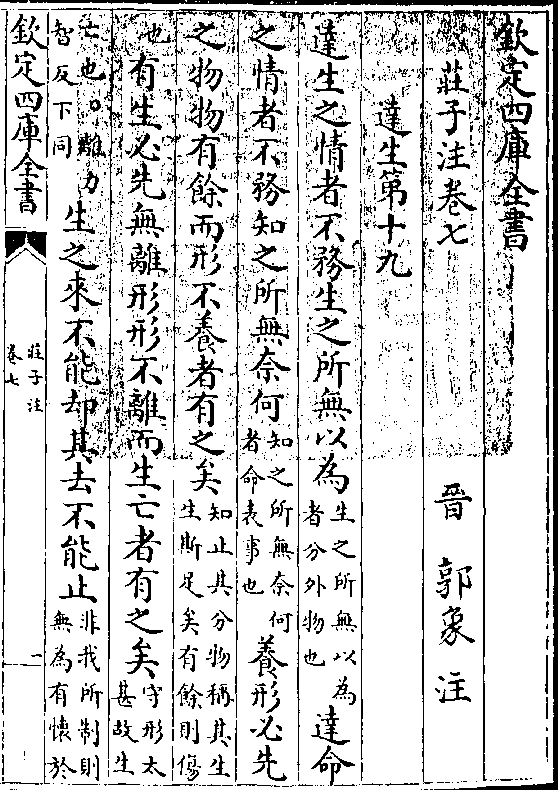 欽定四庫全書
莊子注卷七
晉 郭象 注
達生第十九
達生之情者不務生之所無以為生之所無以為者分外物也達命
之情者不務知之所無奈何知之所無奈何者命表事也養形必先
之物物有餘而形不養者有之矣知止其分物稱其生生斯足矣有餘則傷
有生必先無離形形不離而生亡者有之矣守形太甚故生
亡也。離力智反下同生之來不能却其去不能止非我所制則無為有懷於
也
欽定四庫全書
莊子注
卷七
一